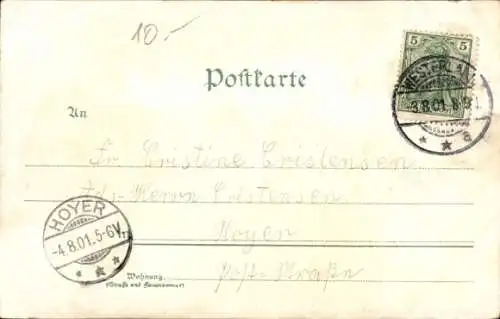 10.-
Postkarte
5 5
WESTERLAND
3.8.01.
* * a
An
Fr Cristine Cristensen
Herrn Cristensen
HOYER
-4.8.01.5-6V.
* * *
Hoyer
Wohnung
(Straße und Hausnummer)
Post-Straße